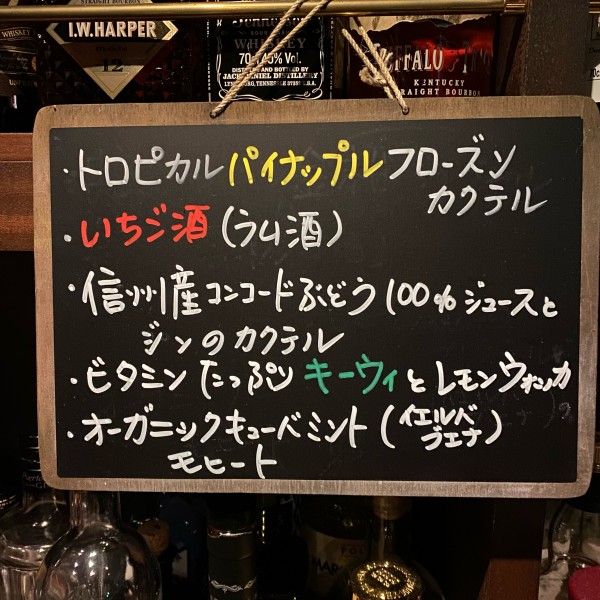 STRAIGHT BOURBON
I.W.HARPER
12
WHISKEY
WHISKEY
70cl 45% Vol.
DISTILLED AND BOTTLED BY
JACK DANIEL DISTILLERY
LYNCHBURG, TENNESSEE 37359 U.S.A.
BUFFALO
KENTUCKY
STRAIGHT BOURBON
・トロピカルパイナップルフローズン
カクテル
・いちご酒(ラム酒)
・信州産コンコードぶどう100%ジュースと
ジンのカクテル
・ビタミンたっぷりキーウィとレモンウォッカ
・オーガニックキューバミント(イエルバ
ブエナ)
モヒート